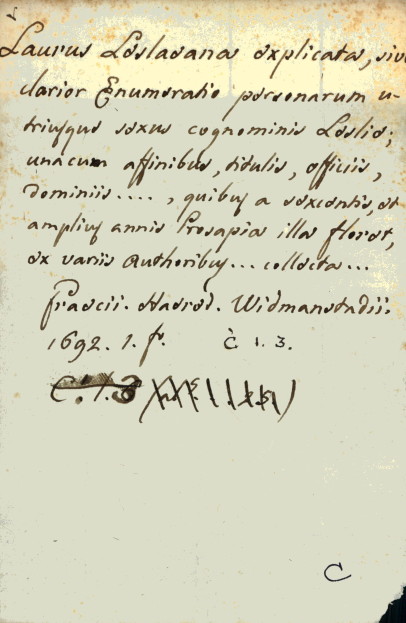 Laurus Leslaeana explicata, sive
clarior Enumeratio personarum u-
triusque sexus cognominis Leslie;
unacum affinibus, titulis, officiis,
Dominiis...., quibus a sexcentis, et
amplius annis Prosapia illa floret,
ex variis Authoribus... collecta...
Graecii. Haered. Widmanstadii.
1692. 1. f. C 1. 3.
C. 1. 3
C